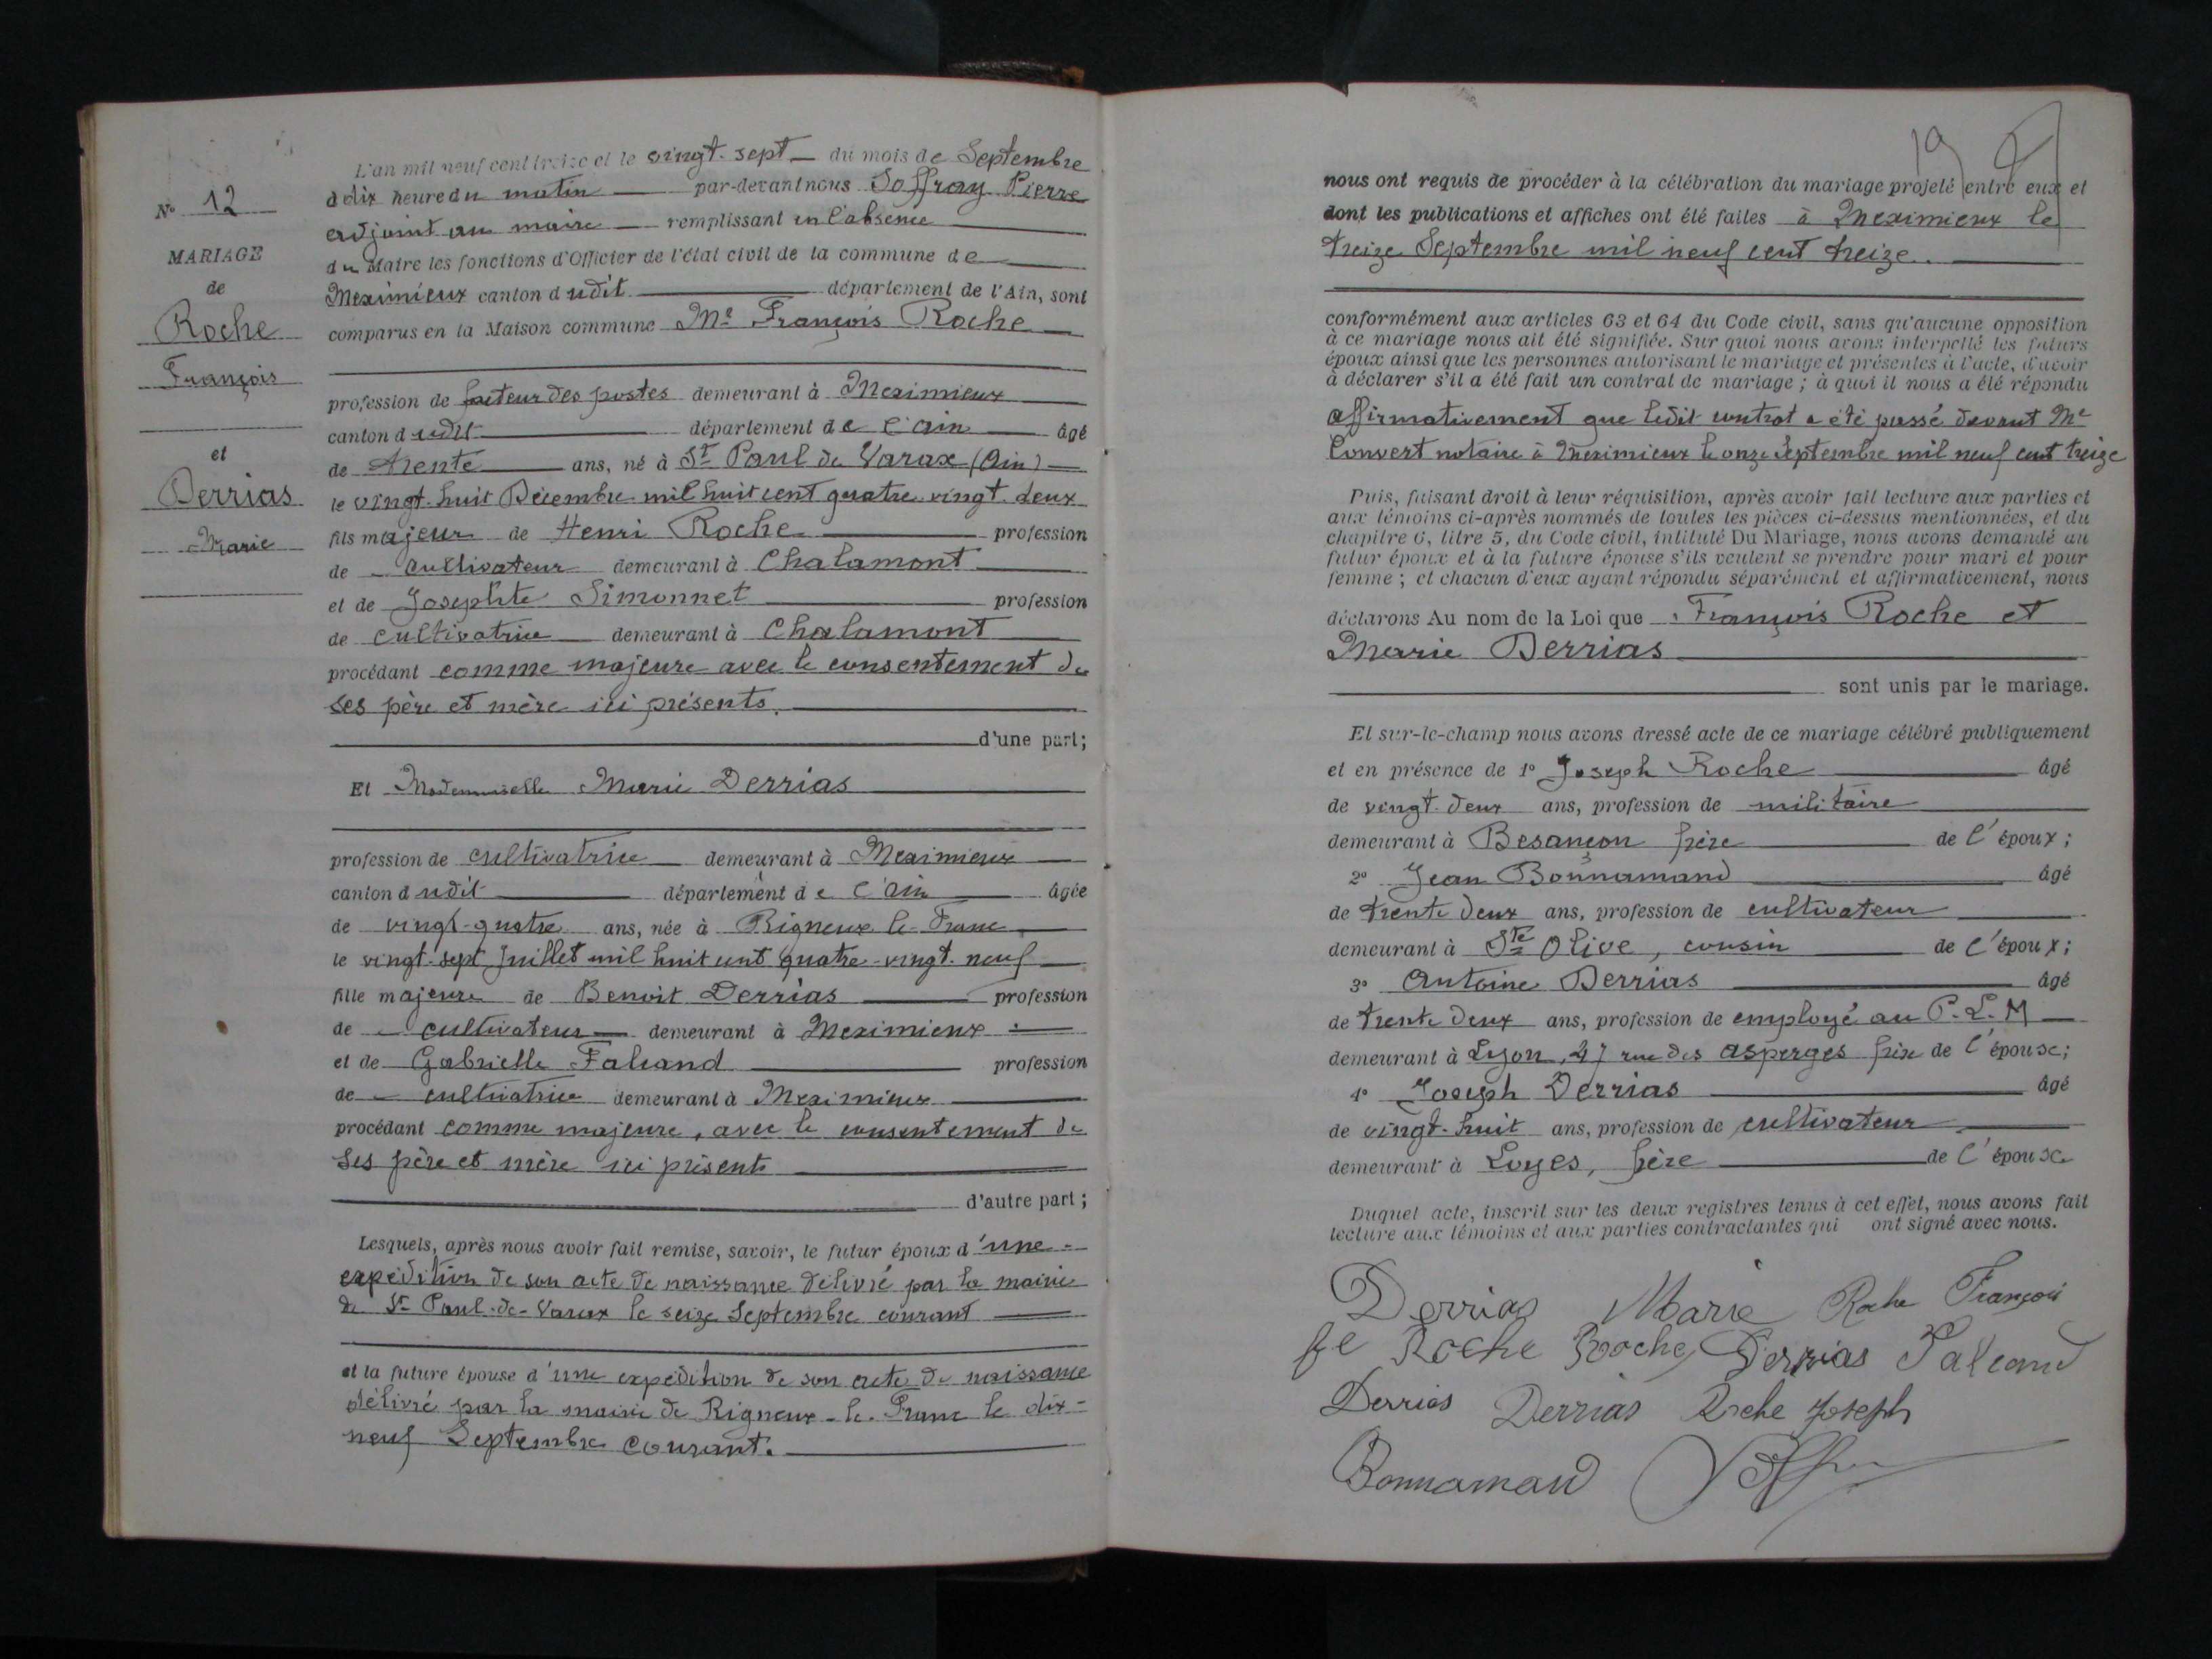 N° 12
MARIAGE
de
Roche
François
et
Derrias
Marie
L'an mil neuf cent treize et le vingt-sept du mois de Septembre
à dix heure du matin par-devant nous Soffray Pierre
adjoint au maire remplissant en l'absence
du Maire les fonctions d'Officier de l'état civil de la commune de
Meximieux canton dudit département de l'Ain, sont
comparus en la Maison commune Mr François Roche
profession de facteur des postes demeurant à Meximieux
canton dudit département de l'ain âgé
de trente ans, né à St Paul de Varax (Ain)
le vingt-huit Décembre mil huit cent quatre-vingt-deux
fils majeur de Henri Roche profession
de cultivateur demeurant à Chalamont
et de Josephte Simonnet profession
de cultivatrice demeurant à Chalamont
procédant comme majeure avec le consentement de
ses père et mère ici présents.
d'une part;
Et Mademoiselle Marie Derrias
profession de cultivatrice demeurant à Meximieux
canton dudit département de l'ain âgée
de vingt-quatre ans, née à Rigneux le Franc
le vingt-sept Juillet mil huit cent quatre-vingt-neuf
fille majeure de Benoit Derrias profession
de cultivateur demeurant à Meximieux
et de Gabrielle Faleand profession
de cultivatrice demeurant à Meximieux
procédant comme majeure, avec le consentement de
ses père et mère ici présents
d'autre part;
Lesquels, après nous avoir fait remise, savoir, le futur époux d'une
expédition de son acte de naissance délivré par la mairie
de St Paul-de-Varax le seize Septembre courant
et la future épouse d'une expédition de son acte de naissance
délivré par la mairie de Rigneux-le-Franc le dix-
neuf Septembre courant.
19
nous ont requis de procéder à la célébration du mariage projeté entre eux et
dont les publications et affiches ont été faites à Meximieux le
treize Septembre mil neuf cent treize.
conformément aux articles 63 et 64 du Code civil, sans qu'aucune opposition
à ce mariage nous ait été signifiée. Sur quoi nous avons interpellé les futurs
époux ainsi que les personnes autorisant le mariage et présentes à l'acte, d'avoir
à déclarer s'il a été fait un contrat de mariage; à quoi il nous a été répondu
affirmativement que ledit contrat a été passé devant Me
Convert notaire à Meximieux le onze Septembre mil neuf cent treize
Puis, faisant droit à leur réquisition, après avoir fait lecture aux parties et
aux témoins ci-après nommés de toutes les pièces ci-dessus mentionnées, et du
chapitre 6, titre 5, du Code civil, intitulé Du Mariage, nous avons demandé au
futur époux et à la future épouse s'ils veulent se prendre pour mari et pour
femme; et chacun d'eux ayant répondu séparément et affirmativement, nous
déclarons Au nom de la Loi que François Roche et
Marie Derrias
sont unis par le mariage.
Et sur-le-champ nous avons dressé acte de ce mariage célébré publiquement
et en présence de 1° Joseph Roche âgé
de vingt-deux ans, profession de militaire
demeurant à Besançon frère de l'époux;
2° Jean Bonnamand âgé
de trente deux ans, profession de cultivateur
demeurant à Ste Olive, cousin de l'époux;
3° Antoine Derrias âgé
de trente deux ans, profession de employé au P.L.M
demeurant à Lyon, 47 rue des asperges frère de l'épouse;
4° Joseph Derrias âgé
de vingt-huit ans, profession de cultivateur
demeurant à Loyes, frère de l'épouse
Duquel acte, inscrit sur les deux registres tenus à cet effet, nous avons fait
lecture aux témoins et aux parties contractantes qui ont signé avec nous.
Derrias Marie Roche François
Roche Roche Derrias Faleand
Derrias Derrias Roche Joseph
Bonnamand